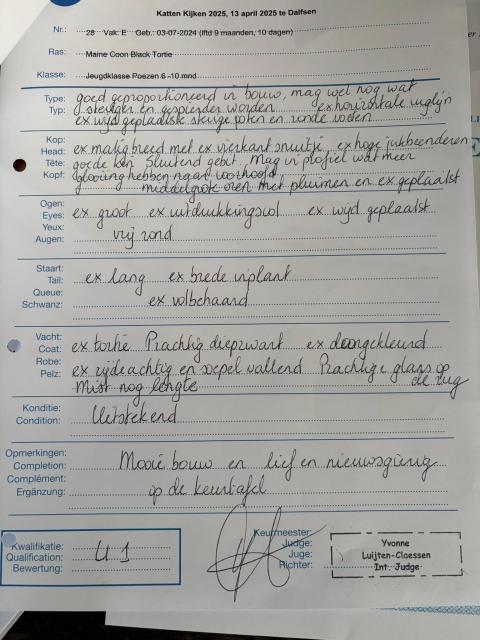 Katten Kijken 2025, 13 april 2025 te Dalfsen
Nr.: 28 Vak: E Geb.: 03-07-2024 (lftd 9 maanden, 10 dagen)
Ras: Maine Coon Black Tortie
Klasse: Jeugdklasse Poezen 6-10 mnd
Type: goed geproportioneerd in bouw, mag wel nog wat
Typ: steviger en gespierder worden ex horizontale ruglijn
ex wijd geplaatste stevige poten en ronde voeten
Kop: ex matig breed met ex vierkant snuitje, ex hoge jukbeenderen
Head: goede kin Sluitend gebit, mag in profiel wat meer
Tête: glooiing hebben naar voorhoofd
Kopf: middelgrote oren met pluimen en ex geplaatst
Ogen:
Eyes: ex groot ex uitdrukkingsvol ex wijd geplaatst
Yeux:
Augen: vrij rond
Staart:
Tail: ex lang ex brede inplant
Queue:
Schwanz: ex volbehaard
Vacht:
Coat: ex tortie Prachtig diepzwart ex doorgekleurd
Robe:
Pelz: ex zijdeachtig en soepel vallend Prachtige glans op
Mist nog lengte de rug
Konditie:
Condition: Uitstekend
Opmerkingen:
Completion: Mooie bouw en lief en nieuwsgierig
Complément:
Ergänzung: op de keurtafel
Kwalifikatie:
Qualification: U 1
Bewertung:
Keurmeester:
Judge:
Juge:
Richter:
Yvonne
Luijten-Claessen
Int. Judge